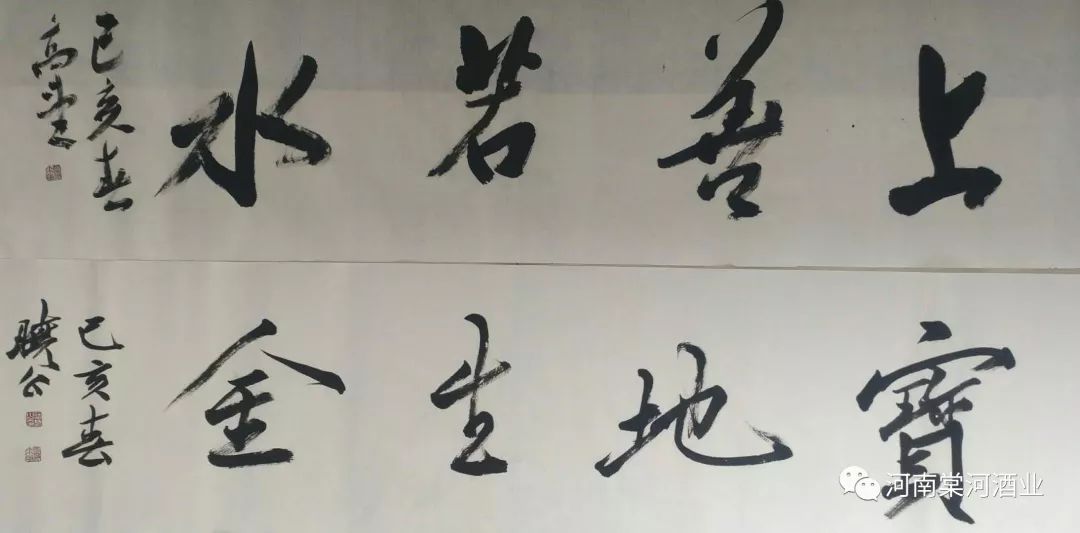 上善若水
己亥春
寶地生金
己亥春
曉公
河南棠河酒业